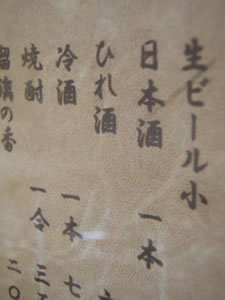 生ビール小
日本酒 一本
ひれ酒 六
冷酒 一本 七
焼酎 一合 三五
留濱の香 二〇